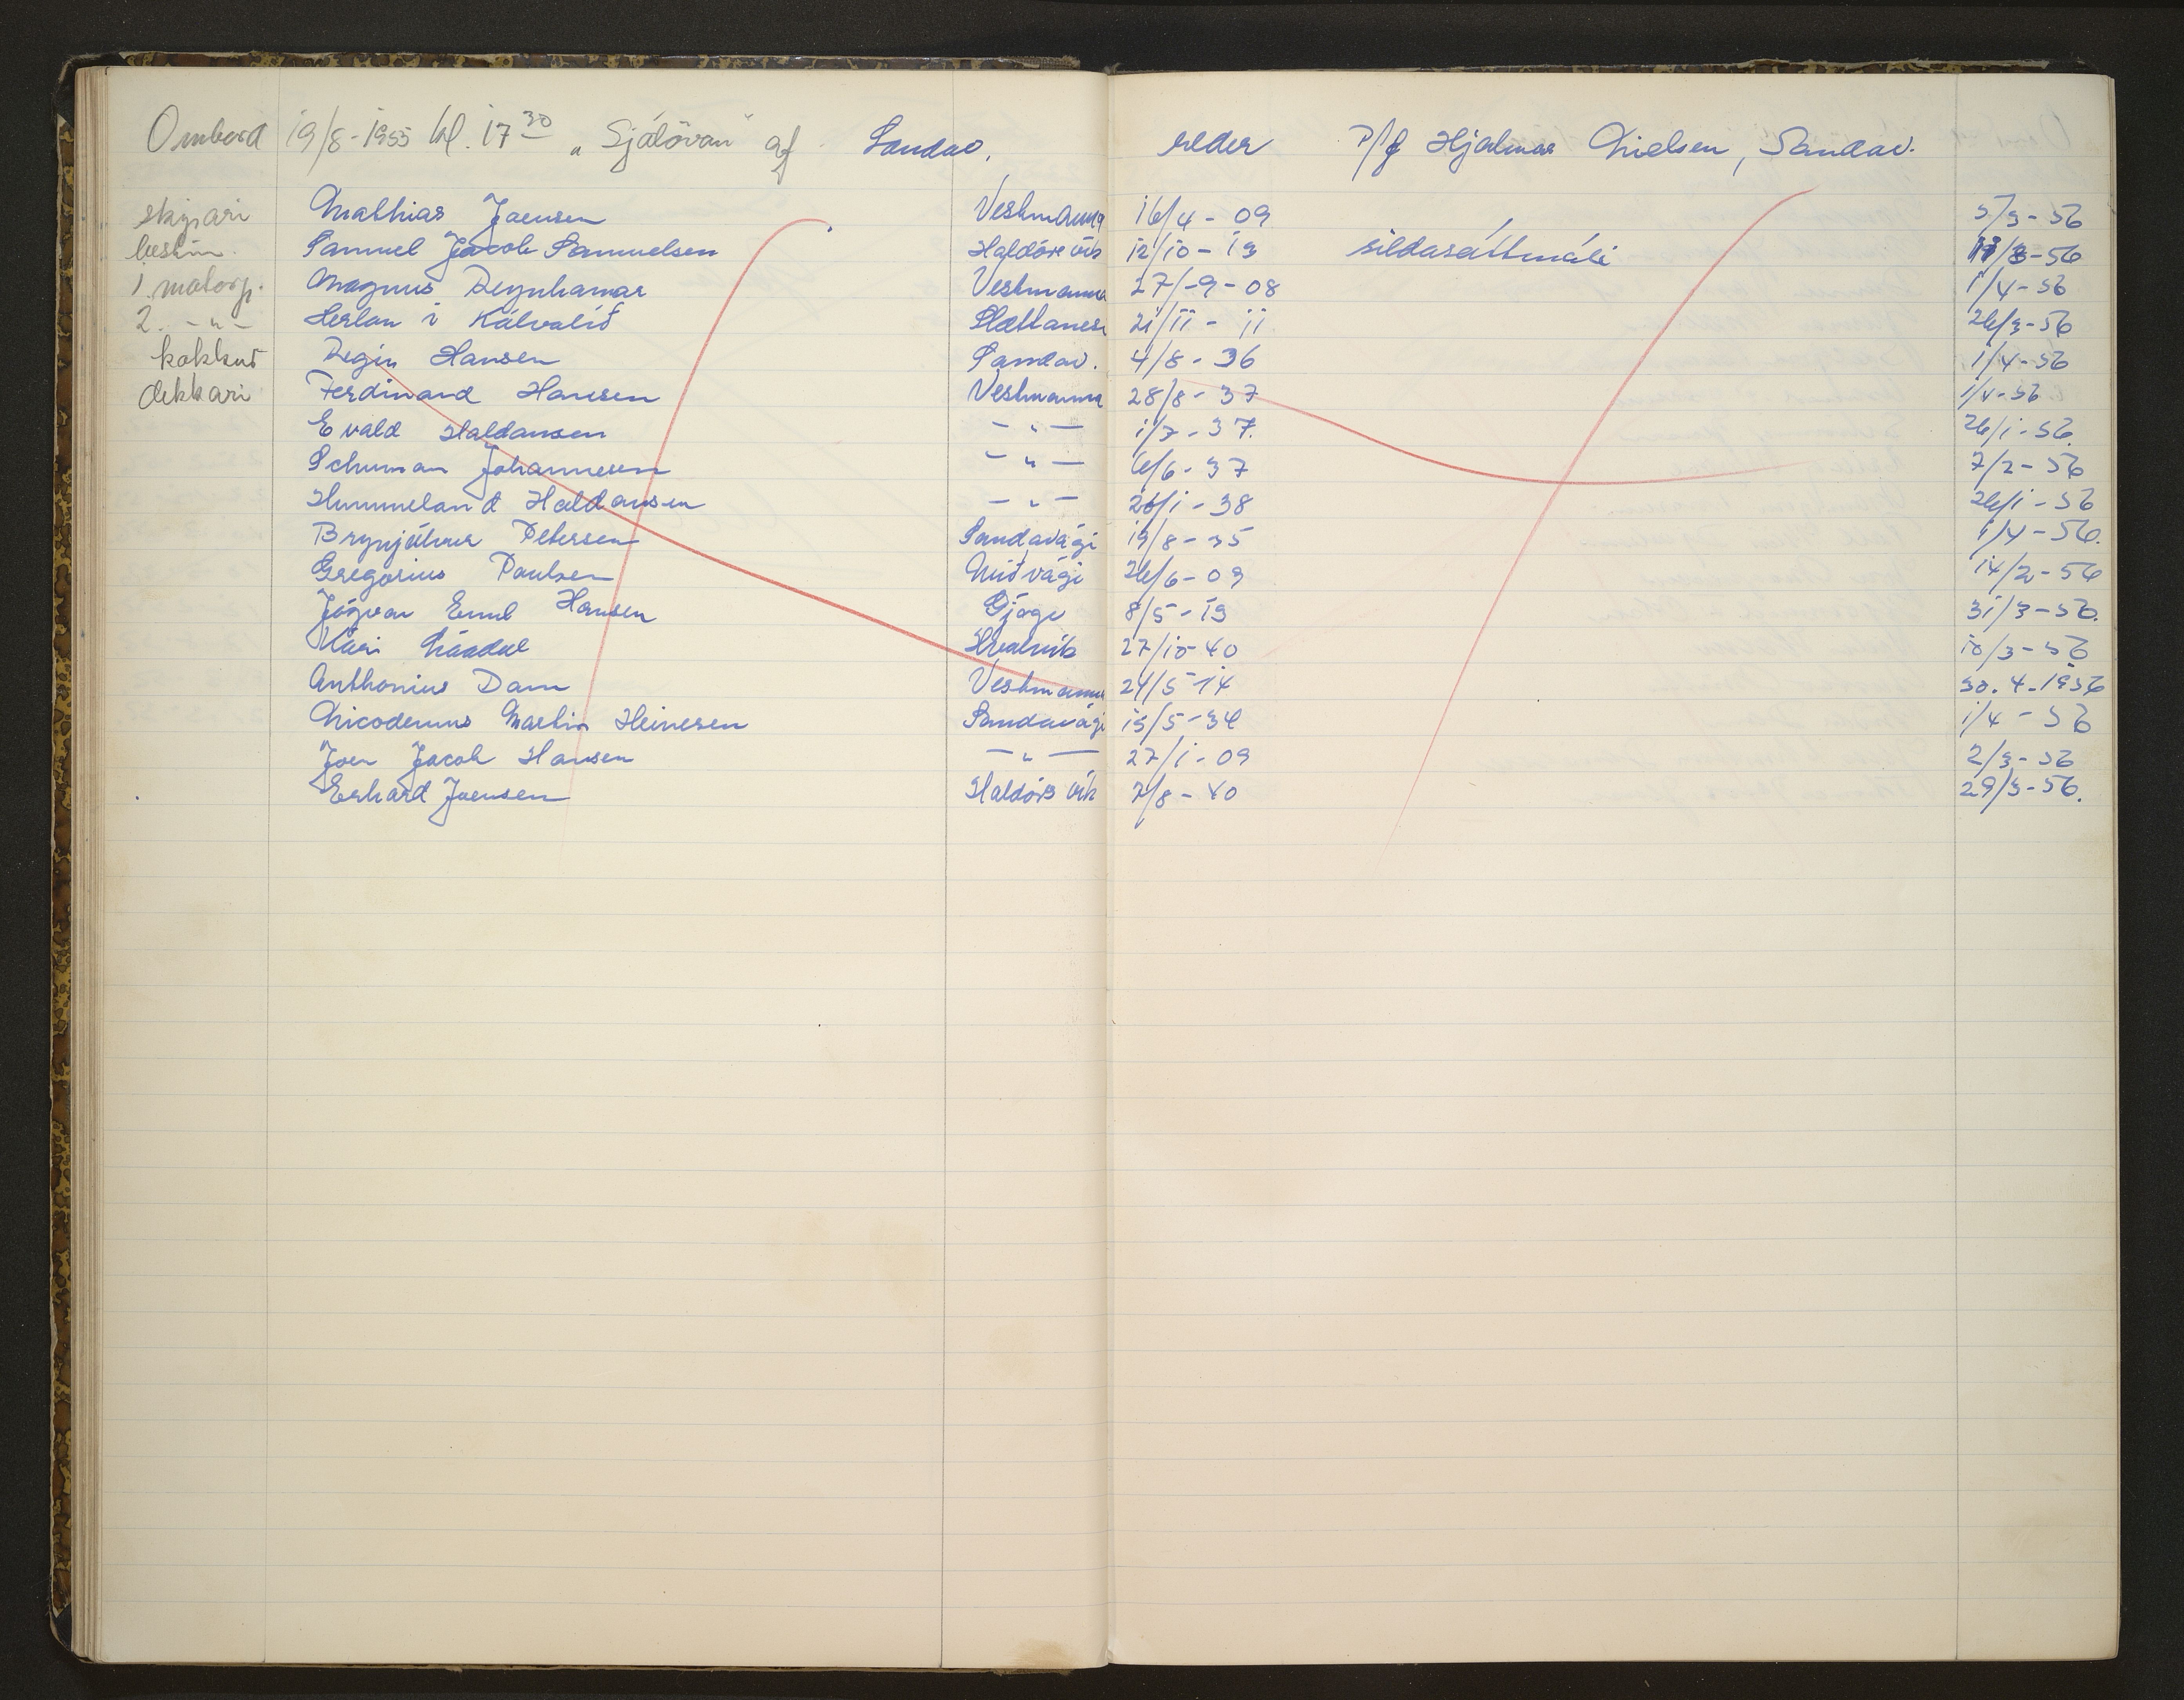 Ombord 19/8-1955 kl. 17 30 "Sjálövan" af Sandav. reder P/f Hjalmar Nielsen, Sandav.
skipari Mathias Joensen Vestmanna 16/4 - 09 5/3-56
bestm. Samuel Jacob Samuelsen Haldórsvík 12/10 - 19 sildasáttmáli /3-56
1. motorp. Magnus Reynhamar Vestmanna 27/-9-08 1/4-56
2. -"- Herlan í Kálvalíð Slættanesi 21/11 - 11 26/3-56
kokkur Regin Hansen Sandav. 4/8 - 36 1/4-56
dekkari Ferdinand Hansen Vestmanna 28/8 - 37 1/4-56
Evald Haldansen -"- 1/7-37. 26/1-56.
Schuman Johannesen -"- 6/6-37 7/2-56
Hummeland Haldansen -"- 26/1-38 26/1-56
Brynjálvur Petersen Sandavági 19/8-35 1/4-56.
Gregorius Paulsen Miðvági 26/6-09 14/2-56
Jógvan Emil Hansen Gjógv 8/5-19 31/3-56.
Kári Hvalvík 27/10-40 10/3-56
Anthonius Dam Vestmanna 24/5-14 30.4.1956
Nicodemus Martin Heinesen Sandavági 15/5-34 1/4-56
Joen Jacob Hansen -"- 27/1-09 2/3-56
Erhard Joensen Haldórsvík 7/8-40 29/3-56.